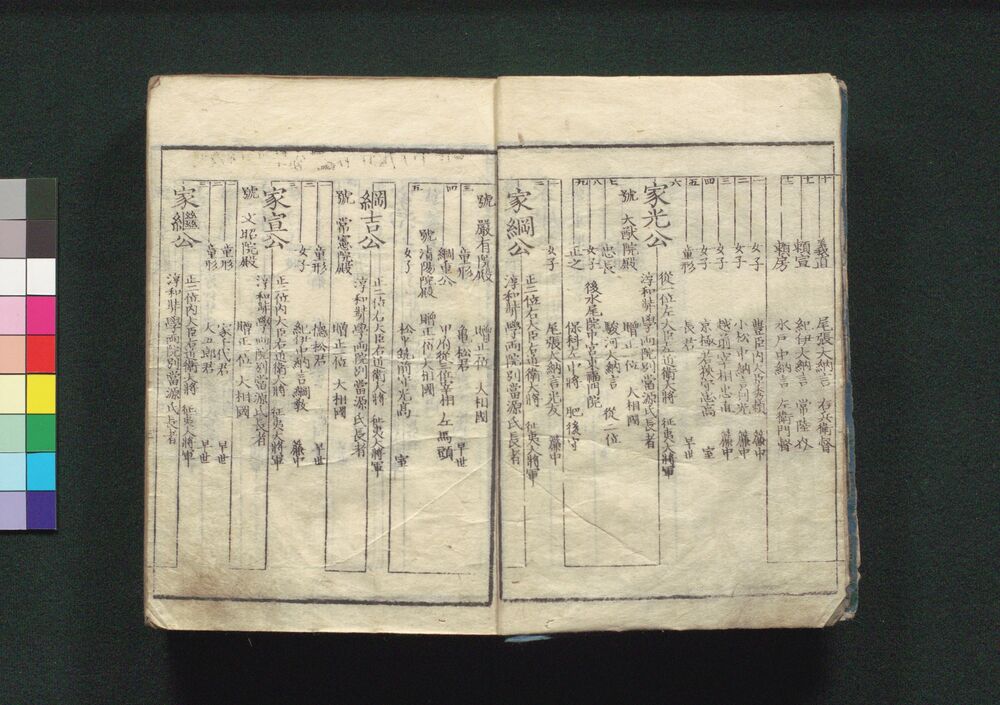 十 義直 尾張大納言 右兵衛督
十一 頼宣 紀伊大納言 常陸介
十二 頼房 水戸中納言 左衛門督
一 女子 豊臣内大臣秀頼 簾中
二 女子 小松中納言利光 簾中
三 女子 越前宰相忠直 簾中
四 女子 京極若狭守忠高 室
五 童形 長君 早世
六
家光公 從一位左大臣左近衛大將 征夷大將軍
淳和奘學両院別當源氏長者
號 大猷院殿 贈正一位 大相國
七 忠長 駿河大納言 從二位
八 女子 後水尾院中宮東福門院
九 正之 保科左中將 肥後守
一 女子 尾張大納言光友 簾中
二
家綱公 正二位右大臣右近衛大將 征夷大將軍
淳和奘學両院別當源氏長者
號 嚴有院殿 贈正一位 大相國
三 童形 亀松君 早世
四 綱重公 甲府從三位宰相 左馬頭
號清陽院殿 贈正一位大相國
五 女子 松平筑前守光高 室
綱吉公 正二位右大臣右近衛大將 征夷大將軍
淳和奘學両院別當源氏長者
號 常憲院殿 贈正一位 大相國
一 童形 徳松君 早世
二 女子 紀伊中納言綱教 簾中
三
家宣公 正二位内大臣右近衛大將 征夷大將軍
淳和奘學両院別當源氏長者
號 文昭院殿 贈正一位 大相國
一 童形 家千代君 早世
二 童形 大五郎君 早世
三
家繼公 正二位内大臣右近衛大將 征夷大將軍
淳和奘學両院別當源氏長者